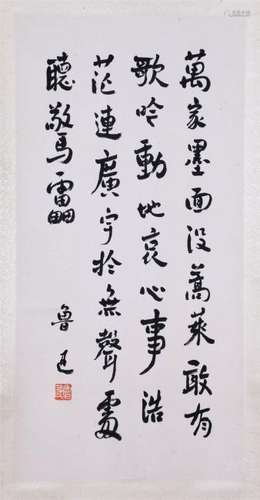 萬家墨面没蒿萊敢有
歌吟動地哀心事浩
茫連廣宇於無聲處
聽驚靁
魯迅